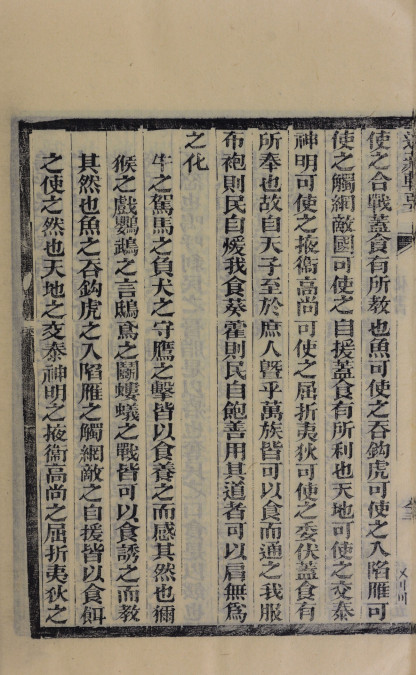 使之合戰蓋食有所教也魚可使之吞鈎虎可使之入陷雁可
使之觸網敵國可使之自援蓋食有所利也天地可使之交泰
神明可使之掖衞高尚可使之屈折夷狄可使之委伏蓋食有
所奉也故自天子至於庶人暨乎萬族皆可以食而通之我服
布袍則民自煖我食葵藿則民自飽善用其道者可以肩無爲
之化
牛之駕馬之負犬之守鷹之擊皆以食養之而感其然也獼
猴之戲鸚鵡之言鴟鳶之鬭螻蟻之戰皆可以食誘之而教
其然也魚之吞鈎虎之入陷雁之觸網敵之自援皆以食餌
之使之然也天地之交泰神明之掖衞高尚之屈折夷狄之